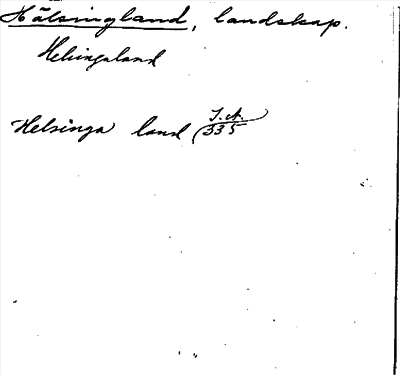 Hälsingland, landskap.
Helsingaland
Helsinga land (J.A. 335